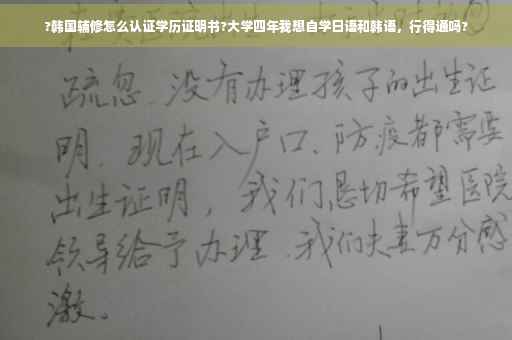 ?韩国辅修怎么认证学历证明书?大学四年我想自学日语和韩语，行得通吗?
疏忽.没有办理孩子的出生证
明.现在入户口、防疫都需要
出生证明，我们恳切希望医院
领导给予办理.我们夫妻万分感
激。